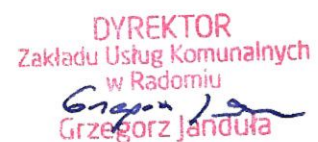 DYREKTOR
Zakładu Usług Komunalnych
w Radomiu
Grzegorz Janduła